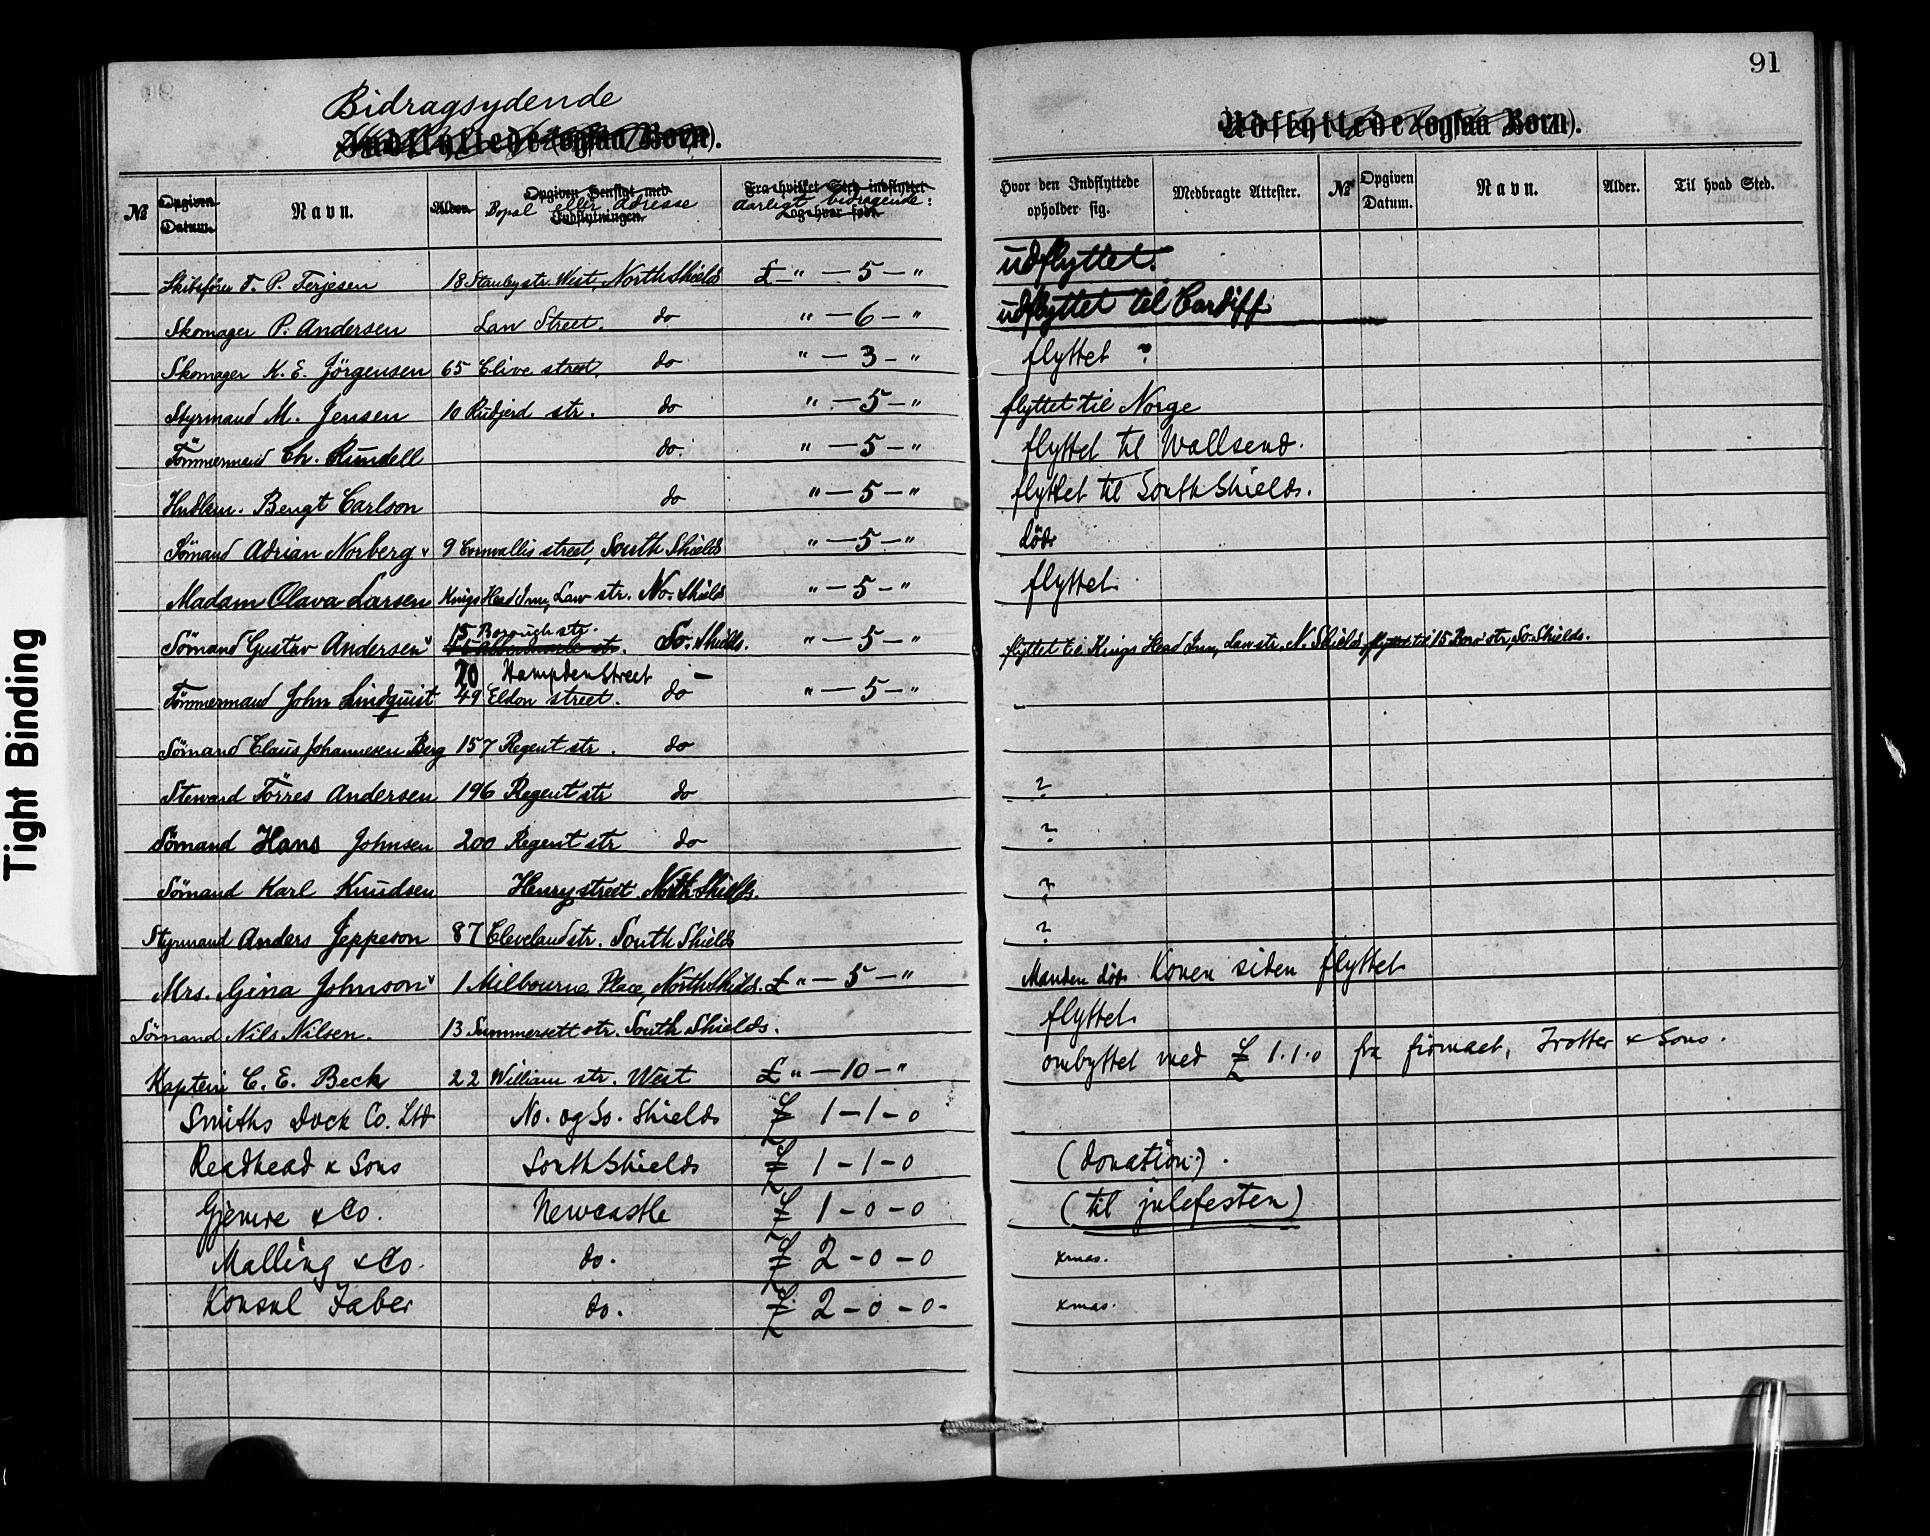 91
Bidragsydende
Indflyttede (ogsaa Børn).
Udflyttede (ogsaa Børn).
№ Opgiven Datum. Navn. Alder. Opgiven Hensigt med Indflytningen. Bopæl eller Adresse Fra hvilket Sted indflyttet og hvor født. aarligt bidragende:
Hvor den Indflyttede opholder sig. Medbragte Attester. № Opgiven Datum. Navn. Alder. Til hvad Sted.
Skibsfører F. P. Terjesen 18 Stanley str. West, North Shields £ " — 5 — " udflyttet.
Skomager P. Andersen Law Street. do " — 6 — " udflyttet til Cardiff
Skomager K. E. Jörgensen 65 Clive street, do " — 3 — " flyttet ?
Styrmand M. Jensen 10 Rudjerd str. do " — 5 — " flyttet til Norge
Tömmermand Ch. Rundell do. " — 5 — " flyttet til Wallsend.
Hndlm. Bengt Carlson do " — 5 — " flyttet til South Shields.
Sömand Adrian Norberg v 9 Cornvallis street, South Shields " — 5 — " död
Madam Olava Larsen Kings Head Inn, Law str. No. Shields " — 5 — " flyttet.
Sömand Gustav Andersen v 15 Borough str. So. Shields. " — 5 — " flyttet til Kings Head Inn, Law str. N. Shields flyttet til 15 Boro' str, So. Shields.
70 Hampden Street —
Tömmermand John Lindquist 49 Eldon street. do " — 5 — "
Sömand Claus Johannesen Berg 157 Regent str. do
Steward Törres Andersen 196 Regent str do ?
Sömand Hans Johnsen 200 Regent str do ?
Sömand Karl Knudsen Henry street North Shields. ?
Styrmand Anders Jeppeson 87 Cleveland str. South Shields ?
Mrs. Gina Johnson v 1 Milbourne Place, North Shilds. £ " — 5 — " Manden död. Konen siden flyttet
Sömand Nils Nilsen. 13 Summersett str. South Shields. flyttet.
Kaptein C. E. Beck 22 William str. West £ " — 10 — " ombyttet med £ 1.1.0 fra firmaet, Trotter & Sons.
Smiths Dock Co. Ltd No. og So. Shields £ 1 — 1 — 0
Readhead & Sons South Shields £ 1 — 1 — 0 (donation).
Gjemre & Co. Newcastle £ 1 — 0 — 0 (til julefesten)
Malling & Co. do. £ 2 — 0 — 0 xmas.
Konsul Faber do. £ 2 — 0 — 0 — xmas.
Tight Binding